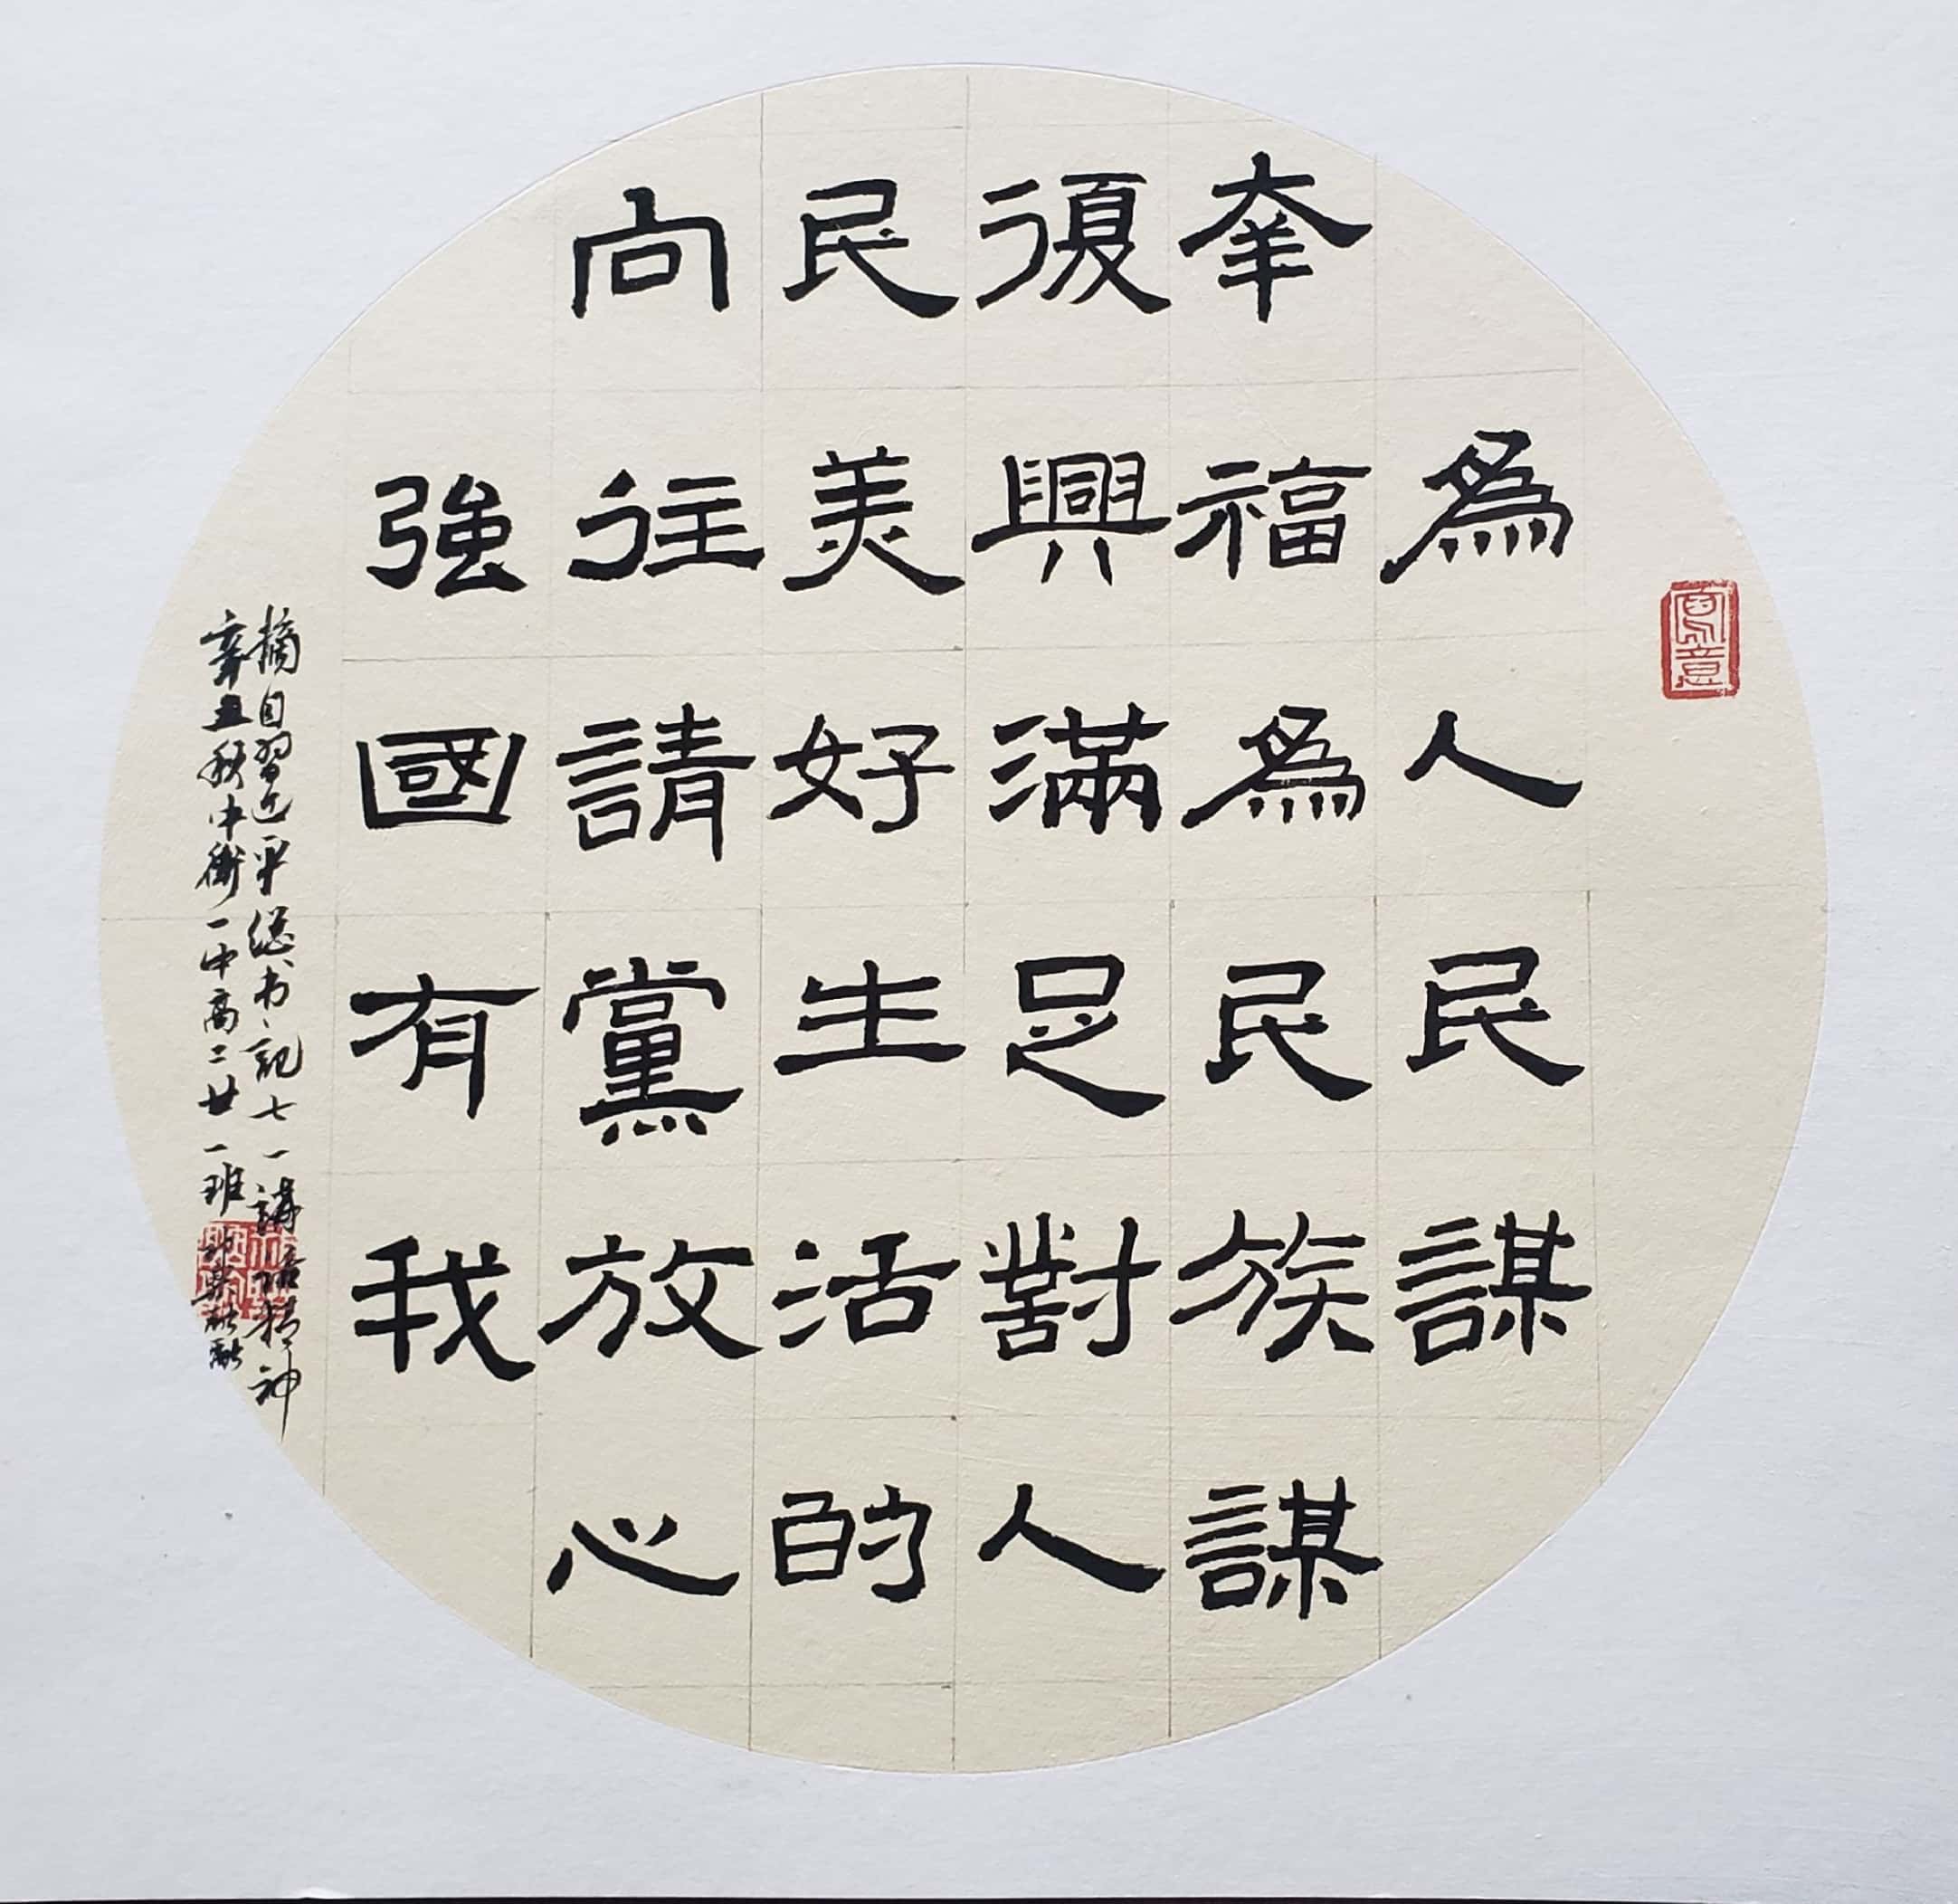 為人民謀
幸福為民族謀
復興滿足對人
民美好生活的
向往請黨放心
強國有我
摘自習近平總书記七一講話精神
辛丑秋中衛一中高二廿一班